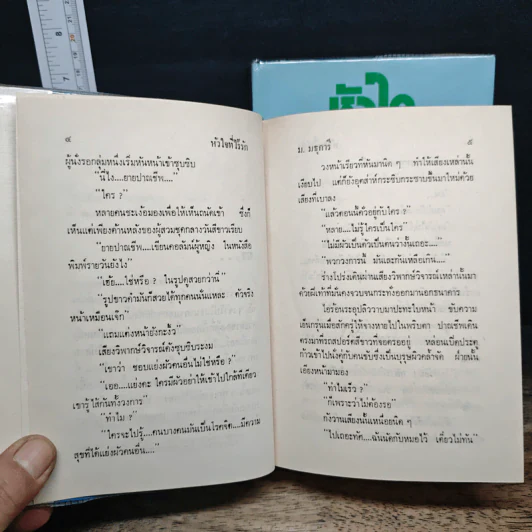 หัวใจ
๔
หัวใจที่ไร้รัก
ผู้นั่งรอกลุ่มหนึ่งเริ่มหันหน้าเข้าซุบซิบ
"นี่ไง....ยายปาณชีพ...."
"ใคร ?"
หลายคนชะเง้อมองเพื่อให้เห็นถนัดเข้า ซึ่งก็
เห็นแต่เพียงด้านหลังของผู้สวมชุดกลางวันสีขาวเรียบ
"ยายปาณชีพ....เขียนคอลัมน์ผู้หญิง ในหนังสือ
พิมพ์รายวันยังไง"
"เฮ้อ....ใช่หรือ ? ในรูปดูสวยกว่านี่"
"รูปขาวดำมันก็สวยได้ทุกคนนั่นแหละ ตัวจริง
หน้าเหมือนเจ๊ก"
"แถมแต่งหน้ายังกะงิ้ว"
เสียงวิพากษ์วิจารณ์ดังซุบซิบระงม
"เขาว่า ชอบแย่งผัวคนอื่นไม่ใช่หรือ ?"
"เออ....แย่งคะ ใครมีผัวอย่าให้เข้าไปใกล้ทีเดียว
เขารู้ไส้กันทั้งวงการ"
"ทำไม ?"
"ใครจะไปรู้....คนบางคนมันเป็นโรคจิต....มีความ
สุขที่ได้แย่งผัวคนอื่น...."
ม. มธุการี
๕
วงหน้าเรียวที่หันมานิด ๆ ทำให้เสียงเหล่านั้น
เงียบไป แต่ก็ยังอุตส่าห์กระซิบกระซาบขึ้นมาใหม่ด้วย
เสียงที่เบาลง
"แล้วตอนนี้ตัวอยู่กับใคร ?"
"หลาย....ไม่รู้ใครเป็นใคร"
"ไม่มีผัวเป็นตัวเป็นคนว่างั้นเถอะ...."
"พวกวงการนี้ มันเละกันเหลือเกิน...."
ร่างโปร่งเดินผ่านเสียงวิพากษ์วิจารณ์เหล่านั้นมา
ด้วยฝีเท้าที่มั่นคงจวบจนกระทั่งออกมานอกธนาคาร
ไอร้อนระอุปลิววาบมาปะทะใบหน้า ขับความ
เย็นกรุ่นเมื่อสักครู่ให้จางหายไปในพริบตา ปาณชีพเดิน
ตรงมาที่รถสปอร์ตสีขาวที่จอดรออยู่ หล่อนเปิดประตู
ก้าวเข้าไปนั่งคู่กับคนขับซึ่งเป็นบุรุษผิวคล้ำจัด ฝ่ายนั้น
เอียงหน้ามามอง
"ทำไมเร็ว ?"
"ก็เพราะว่าไม่ต้องรอ"
กังวานเสียงนั้นเหนื่อยนิด ๆ
"ไปเถอะทัด....ฉันนัดกับหมอไว้ เดี๋ยวไม่ทัน"